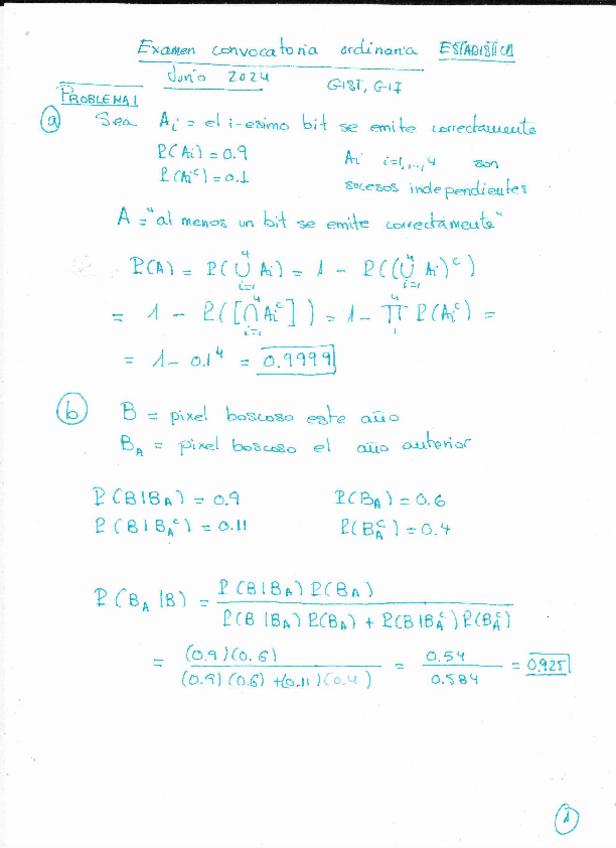 Examen convocatoria ordinaria ESTADÍSTICA
Junio 2024 GIST, GIT
PROBLEMA 1
(a) Sea Ai = el i-esimo bit se emite correctamente
P(Ai) = 0.9 Ai i=1,..,4 son
P(Aiᶜ) = 0.1 sucesos independientes
A = "al menos un bit se emite correctamente"
P(A) = P(⋃_{i=1}^{4} Ai) = 1 - P((⋃_{i=1}^{4} Ai)ᶜ)
= 1 - P([⋂_{i=1}^{4} Aiᶜ]) = 1 - ∏_{1}^{4} P(Aiᶜ) =
= 1 - 0.1⁴ = 0.9999
(b) B = pixel boscoso este año
B_A = pixel boscoso el año anterior
P(B|B_A) = 0.9 P(B_A) = 0.6
P(B|B_Aᶜ) = 0.11 P(B_Aᶜ) = 0.4
P(B_A|B) = P(B|B_A) P(B_A)
P(B|B_A) P(B_A) + P(B|B_Aᶜ) P(B_Aᶜ)
= (0.9)(0.6) = 0.54 = 0.925
(0.9)(0.6) + (0.11)(0.4) 0.584
1